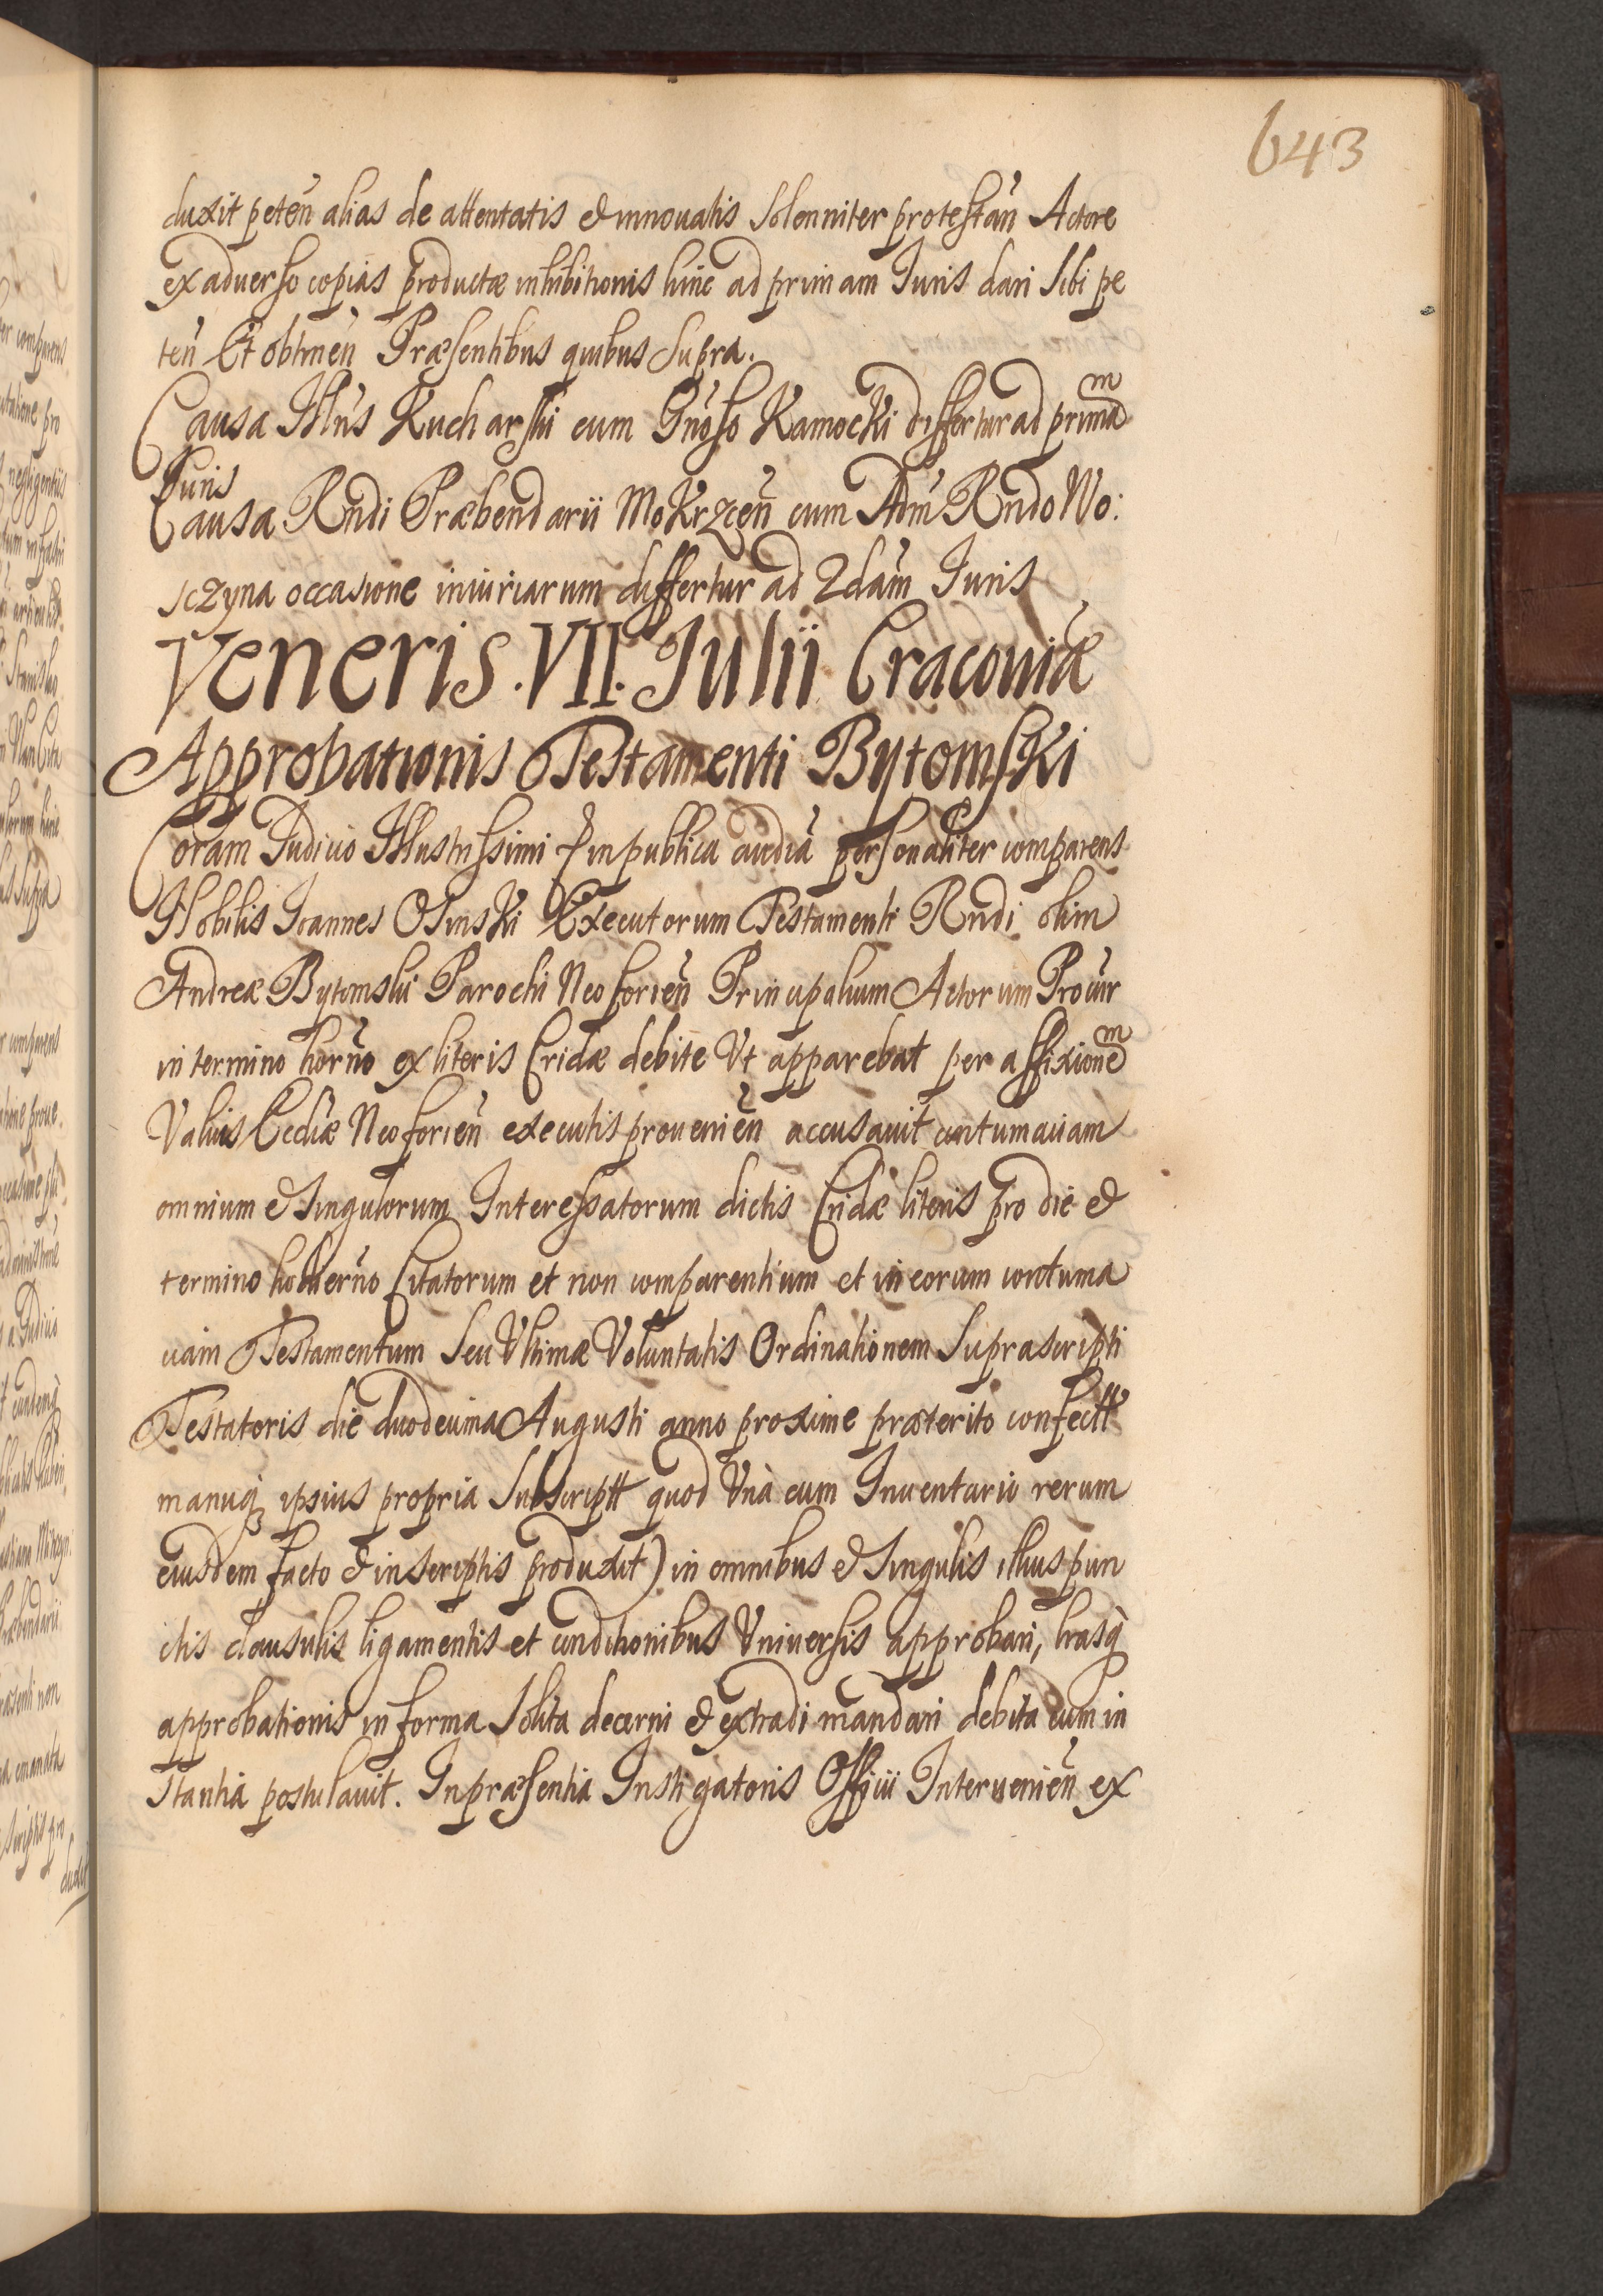 643
duxit peteñ alias de attentatis & innouatis Solenniter protestañ Actore
ex aduerso copias productæ inhibitionis hinc ad primam Iuris dari Sibi pe
teñ Et obtineñ Præsentibus quibus Supra.
Causa Illñs Kucharski cum Gñoso Kamocki differtur ad primãm
Iuris
Causa Rndi Præbendarii Mokrzceñ cum Adm̃ Rndo Wo:
sczyna occasione iniuriarum differtur ad 2dam Iuris
Veneris .VII. Julii Cracouiæ
Approbationis Testamenti Bytomski
Coram Iudicio Illustrissimi & in publica audiã personaliter comparens
Nobilis Ioannes Osinski Executorum Testamenti Rndi olim
Andreæ Bytomski Parochi Neoforieñ Principalium Actorum Procur
in termino horño ex literis Cridæ debite Vt apparebat per affixionem
Valuis Ecclæ Neoforieñ executis prouenieñ accusauit contumaciam
omnium & Singulorum Interessatorum dictis Cridæ literis pro die &
termino hodierño Citatorum et non comparentium et in eorum contuma
ciam Testamentum Seu Vltimæ Voluntatis Ordinationem Suprascripti
Testatoris die duodecima Augusti anno proxime præterito confectt
manuq3 ipsius propria Subscriptt quod Vnà cum Inuentario rerum
eiusdem facto & in scriptis produxit) in omnibus & Singulis illius pun
ctis clausulis ligamentis et conditionibus Vniuersis approbari, lrasq̃
approbationis in forma Solita decerni & extradi mandari debita cum in
stantia postulauit. In præsentia Instigatoris Officii Interuenieñ ex